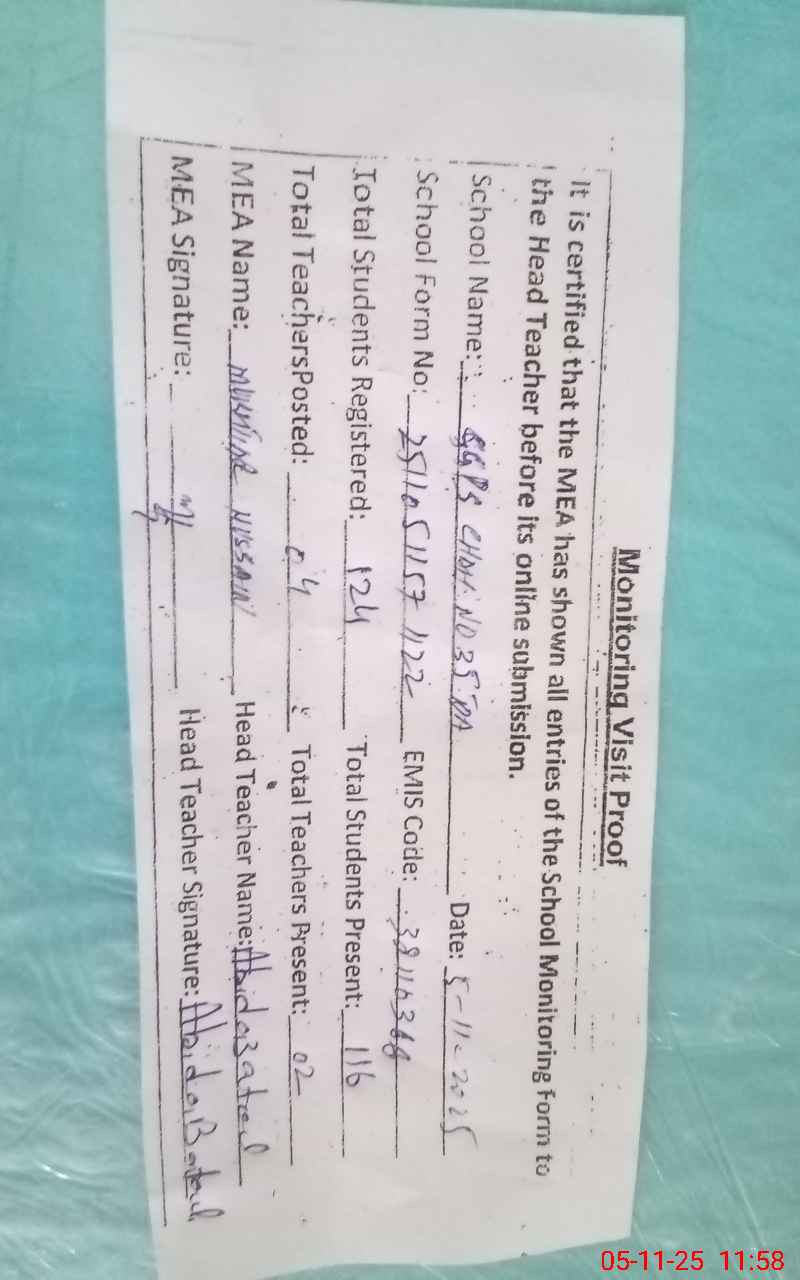 Monitoring Visit Proof
It is certified that the MEA has shown all entries of the School Monitoring Form to
the Head Teacher before its online submission.
School Name: GGPS CHAK NO 35 DA Date: 5-11-2025
School Form No: 2511051157 1122 EMIS Code: 38110368
Total Students Registered: 124 Total Students Present: 116
Total TeachersPosted: 04 Total Teachers Present: 02
MEA Name: HUSSAIN Head Teacher Name: Abida Batool
MEA Signature: Head Teacher Signature: Abida Batool
05-11-25 11:58